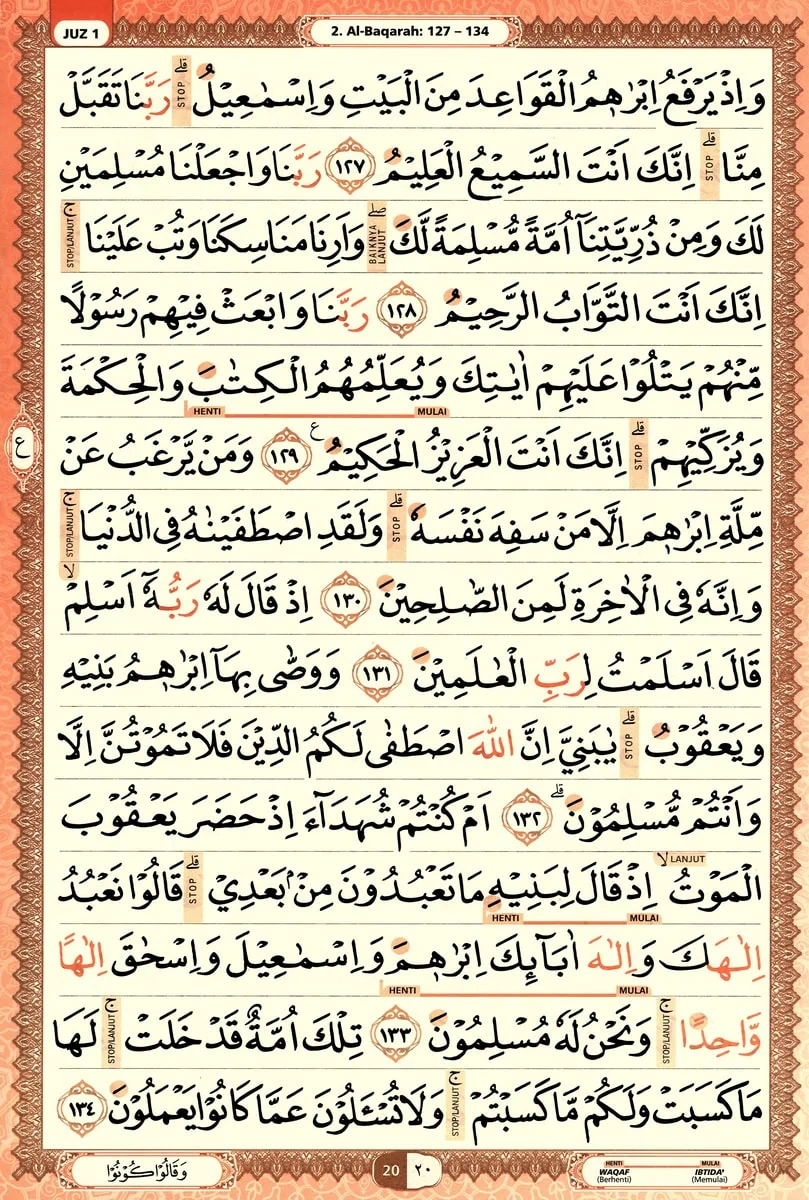 JUZ 1
2. Al-Baqarah: 127 – 134
وَاِذْ يَرْفَعُ اِبْرٰهٖمُ الْقَوَاعِدَ مِنَ الْبَيْتِ وَاِسْمٰعِيْلُۗ STOP رَبَّنَا تَقَبَّلْ
مِنَّاۗ STOP اِنَّكَ اَنْتَ السَّمِيْعُ الْعَلِيْمُ ١٢٧ رَبَّنَا وَاجْعَلْنَا مُسْلِمَيْنِ
لَكَ وَمِنْ ذُرِّيَّتِنَآ اُمَّةً مُّسْلِمَةً لَّكَۖ BAIKNYA LANJUT وَاَرِنَا مَنَاسِكَنَا وَتُبْ عَلَيْنَاۚ STOP/LANJUT
اِنَّكَ اَنْتَ التَّوَّابُ الرَّحِيْمُ ١٢٨ رَبَّنَا وَابْعَثْ فِيْهِمْ رَسُوْلًا
مِّنْهُمْ يَتْلُوْا عَلَيْهِمْ اٰيٰتِكَ وَيُعَلِّمُهُمُ الْكِتٰبَ وَالْحِكْمَةَ
HENTI MULAI
وَيُزَكِّيْهِمْۗ STOP اِنَّكَ اَنْتَ الْعَزِيْزُ الْحَكِيْمُ ࣖ ١٢٩ وَمَنْ يَّرْغَبُ عَنْ
ع
مِّلَّةِ اِبْرٰهٖمَ اِلَّا مَنْ سَفِهَ نَفْسَهٗۗ STOP وَلَقَدِ اصْطَفَيْنٰهُ فِى الدُّنْيَاۚ STOP/LANJUT
وَاِنَّهٗ فِى الْاٰخِرَةِ لَمِنَ الصّٰلِحِيْنَ ١٣٠ اِذْ قَالَ لَهٗ رَبُّهٗٓ اَسْلِمْۙ
قَالَ اَسْلَمْتُ لِرَبِّ الْعٰلَمِيْنَ ١٣١ وَوَصّٰى بِهَآ اِبْرٰهٖمُ بَنِيْهِ
وَيَعْقُوْبُۗ STOP يٰبَنِيَّ اِنَّ اللّٰهَ اصْطَفٰى لَكُمُ الدِّيْنَ فَلَا تَمُوْتُنَّ اِلَّا
وَاَنْتُمْ مُّسْلِمُوْنَۗ ١٣٢ اَمْ كُنْتُمْ شُهَدَآءَ اِذْ حَضَرَ يَعْقُوْبَ
الْمَوْتُۙ LANJUT اِذْ قَالَ لِبَنِيْهِ مَا تَعْبُدُوْنَ مِنْۢ بَعْدِيْۗ STOP قَالُوْا نَعْبُدُ
HENTI MULAI
اِلٰهَكَ وَاِلٰهَ اٰبَاۤىِٕكَ اِبْرٰهٖمَ وَاِسْمٰعِيْلَ وَاِسْحٰقَ اِلٰهًا
HENTI MULAI
وَّاحِدًاۚ STOP/LANJUT وَنَحْنُ لَهٗ مُسْلِمُوْنَ ١٣٣ تِلْكَ اُمَّةٌ قَدْ خَلَتْۚ STOP/LANJUT لَهَا
مَا كَسَبَتْ وَلَكُمْ مَّا كَسَبْتُمْۚ STOP/LANJUT وَلَا تُسْـَٔلُوْنَ عَمَّا كَانُوْا يَعْمَلُوْنَ ١٣٤
وَقَالُوْا كُوْنُوْا
20 ٢٠
HENTI MULAI
WAQAF IBTIDA'
(Berhenti) (Memulai)